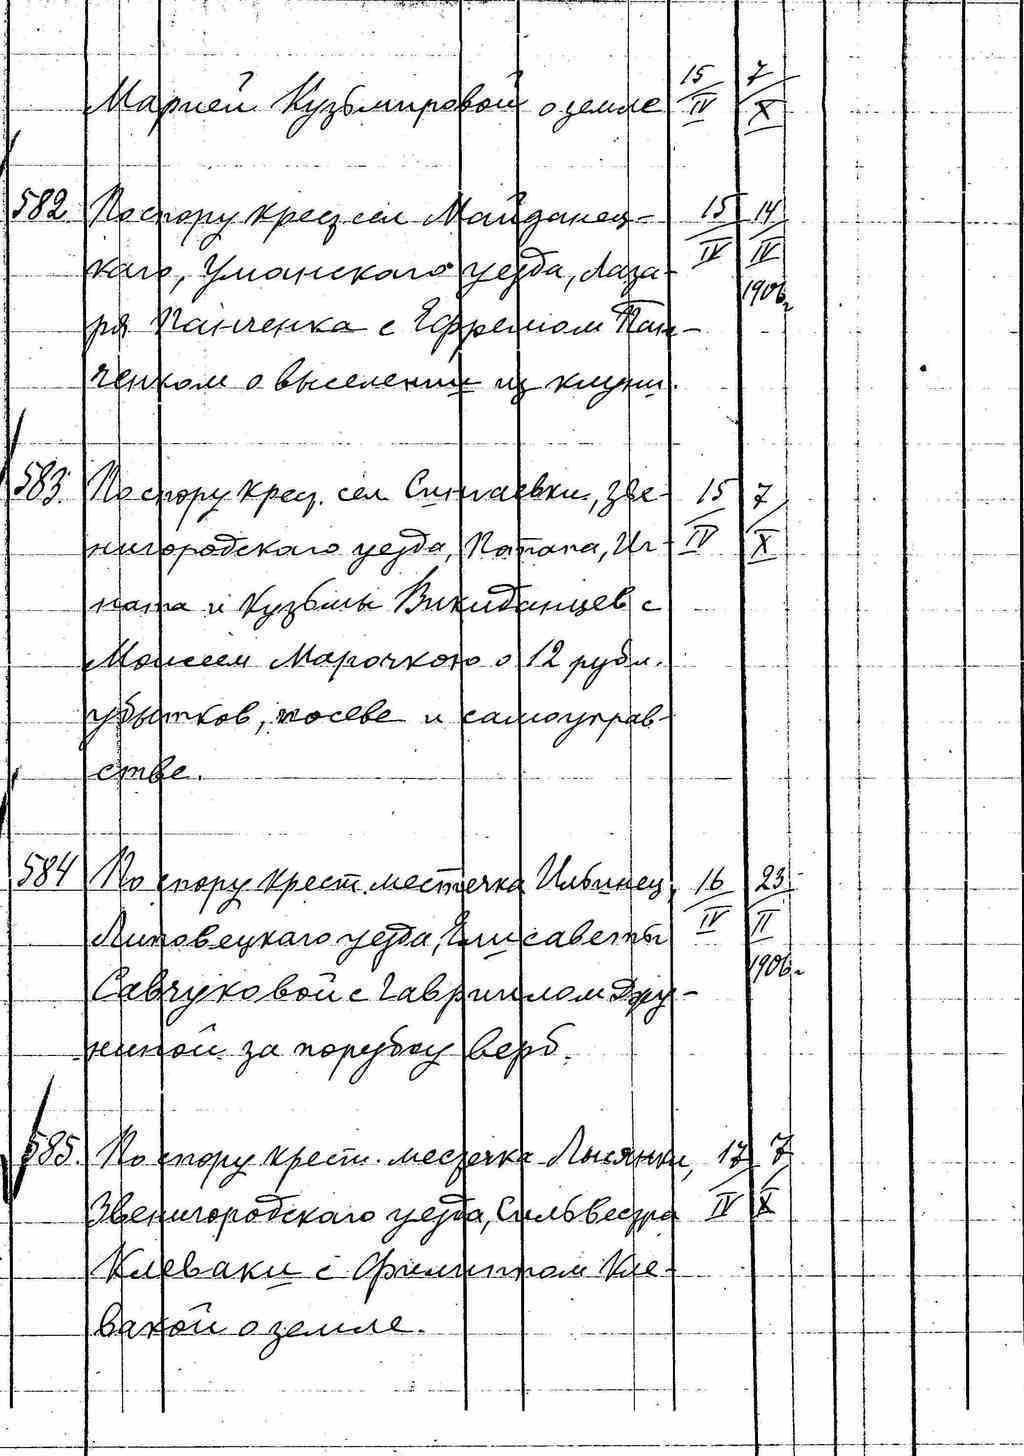 Марией Кузьмировой о земле 15/IV 7/X
582 По спору крес. сел Майданец- 15/IV 14/IV 1906г
каго, Уманскаго уезда, Лаза-
ря Панченка с Ефремом Пан-
ченком о выселении из клуни.
583. По спору крес. сел Синаевки, Зве- 15/IV 7/X
нигородскаго уезда, Потапа, Иг-
ната и Кузьмы Викиданцев с
Моисеем Марочкою о 12 рубл.
убытков, посеве и самоуправ-
стве.
584 По спору крест. местечка Ильинец, 16/IV 23/II 1906г
Липовецкаго уезда, Елисаветы
Савчуковой с Гавриилом Дру-
ниной за порубку верб.
585. По спору крест. местечка Лысянки, 17/IV 7/X
Звенигородскаго уезда, Сильвестра
Клеваки с Филиппом Кле-
вакой о земле.